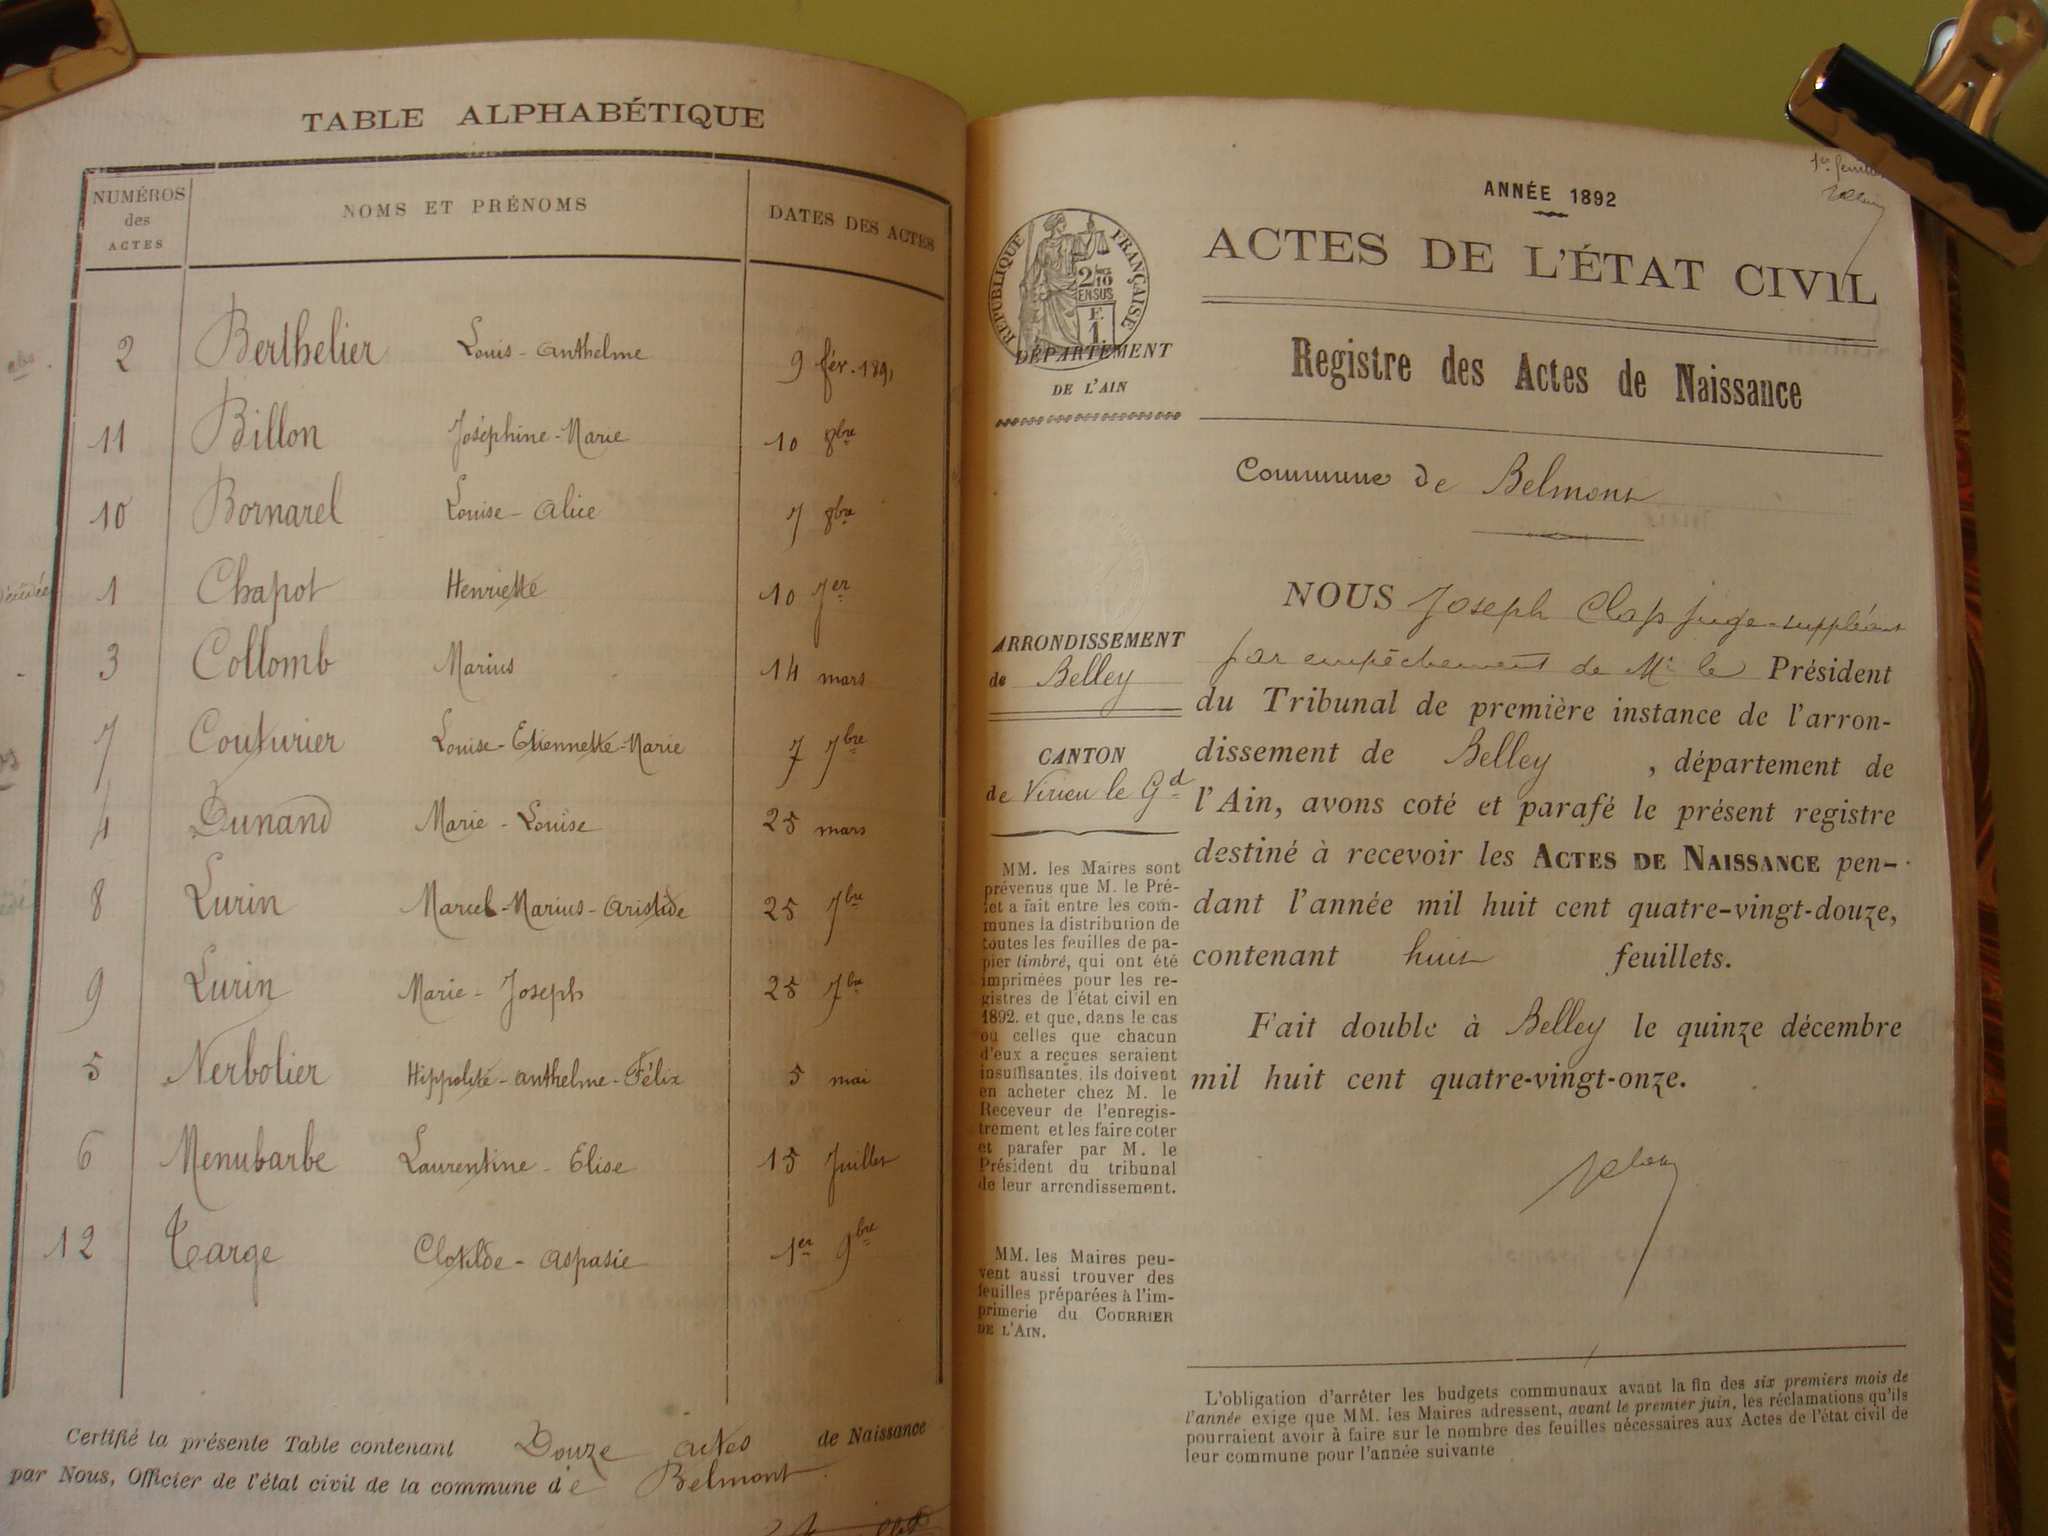 TABLE ALPHABÉTIQUE
NUMÉROS des ACTES NOMS ET PRÉNOMS DATES DES ACTES
2 Berthelier Louis-Anthelme 9 fév. 1891
11 Billon Joséphine-Marie 10 8bre
10 Bornarel Louise-Alice 7 8bre
1 Chapot Henriette 10 Jer
3 Collomb Marius 14 mars
7 Couturier Louise-Etiennette-Marie 7 7bre
4 Dunand Marie-Louise 25 mars
8 Lurin Marcel-Marius-Aristide 25 7bre
9 Lurin Marie-Joseph 25 7bre
5 Nerbolier Hippolite-Anthelme-Félix 5 mai
6 Menubarbe Laurentine-Elise 15 Juillet
12 Targe Clotilde-Aspasie 1er 9bre
Certifié la présente Table contenant Douze actes de Naissance
par Nous, Officier de l'état civil de la commune de Belmont
ANNÉE 1892
ACTES DE L'ÉTAT CIVIL
Registre des Actes de Naissance
RÉPUBLIQUE FRANÇAISE
2/10
EN SUS
F.
1
DÉPARTEMENT
DE L'AIN
Commune de Belmont
ARRONDISSEMENT
de Belley
CANTON
de Virieu le Gd
MM. les Maires sont
prévenus que M. le Pré-
fet a fait entre les com-
munes la distribution de
toutes les feuilles de pa-
pier timbré, qui ont été
imprimées pour les re-
gistres de l'état civil en
1892. et que, dans le cas
où celles que chacun
d'eux a reçues seraient
insuffisantes, ils doivent
en acheter chez M. le
Receveur de l'enregis-
trement et les faire coter
et parafer par M. le
Président du tribunal
de leur arrondissement.
MM. les Maires peu-
vent aussi trouver des
feuilles préparées à l'im-
primerie du COURRIER
DE L'AIN.
NOUS Joseph Clap juge-suppléant
par empêchement de Mr le Président
du Tribunal de première instance de l'arron-
dissement de Belley, département de
l'Ain, avons coté et parafé le présent registre
destiné à recevoir les ACTES DE NAISSANCE pen-
dant l'année mil huit cent quatre-vingt-douze,
contenant huit feuillets.
Fait double à Belley le quinze décembre
mil huit cent quatre-vingt-onze.
L'obligation d'arrêter les budgets communaux avant la fin des six premiers mois de
l'année exige que MM. les Maires adressent, avant le premier juin, les réclamations qu'ils
pourraient avoir à faire sur le nombre des feuilles nécessaires aux Actes de l'état civil de
leur commune pour l'année suivante